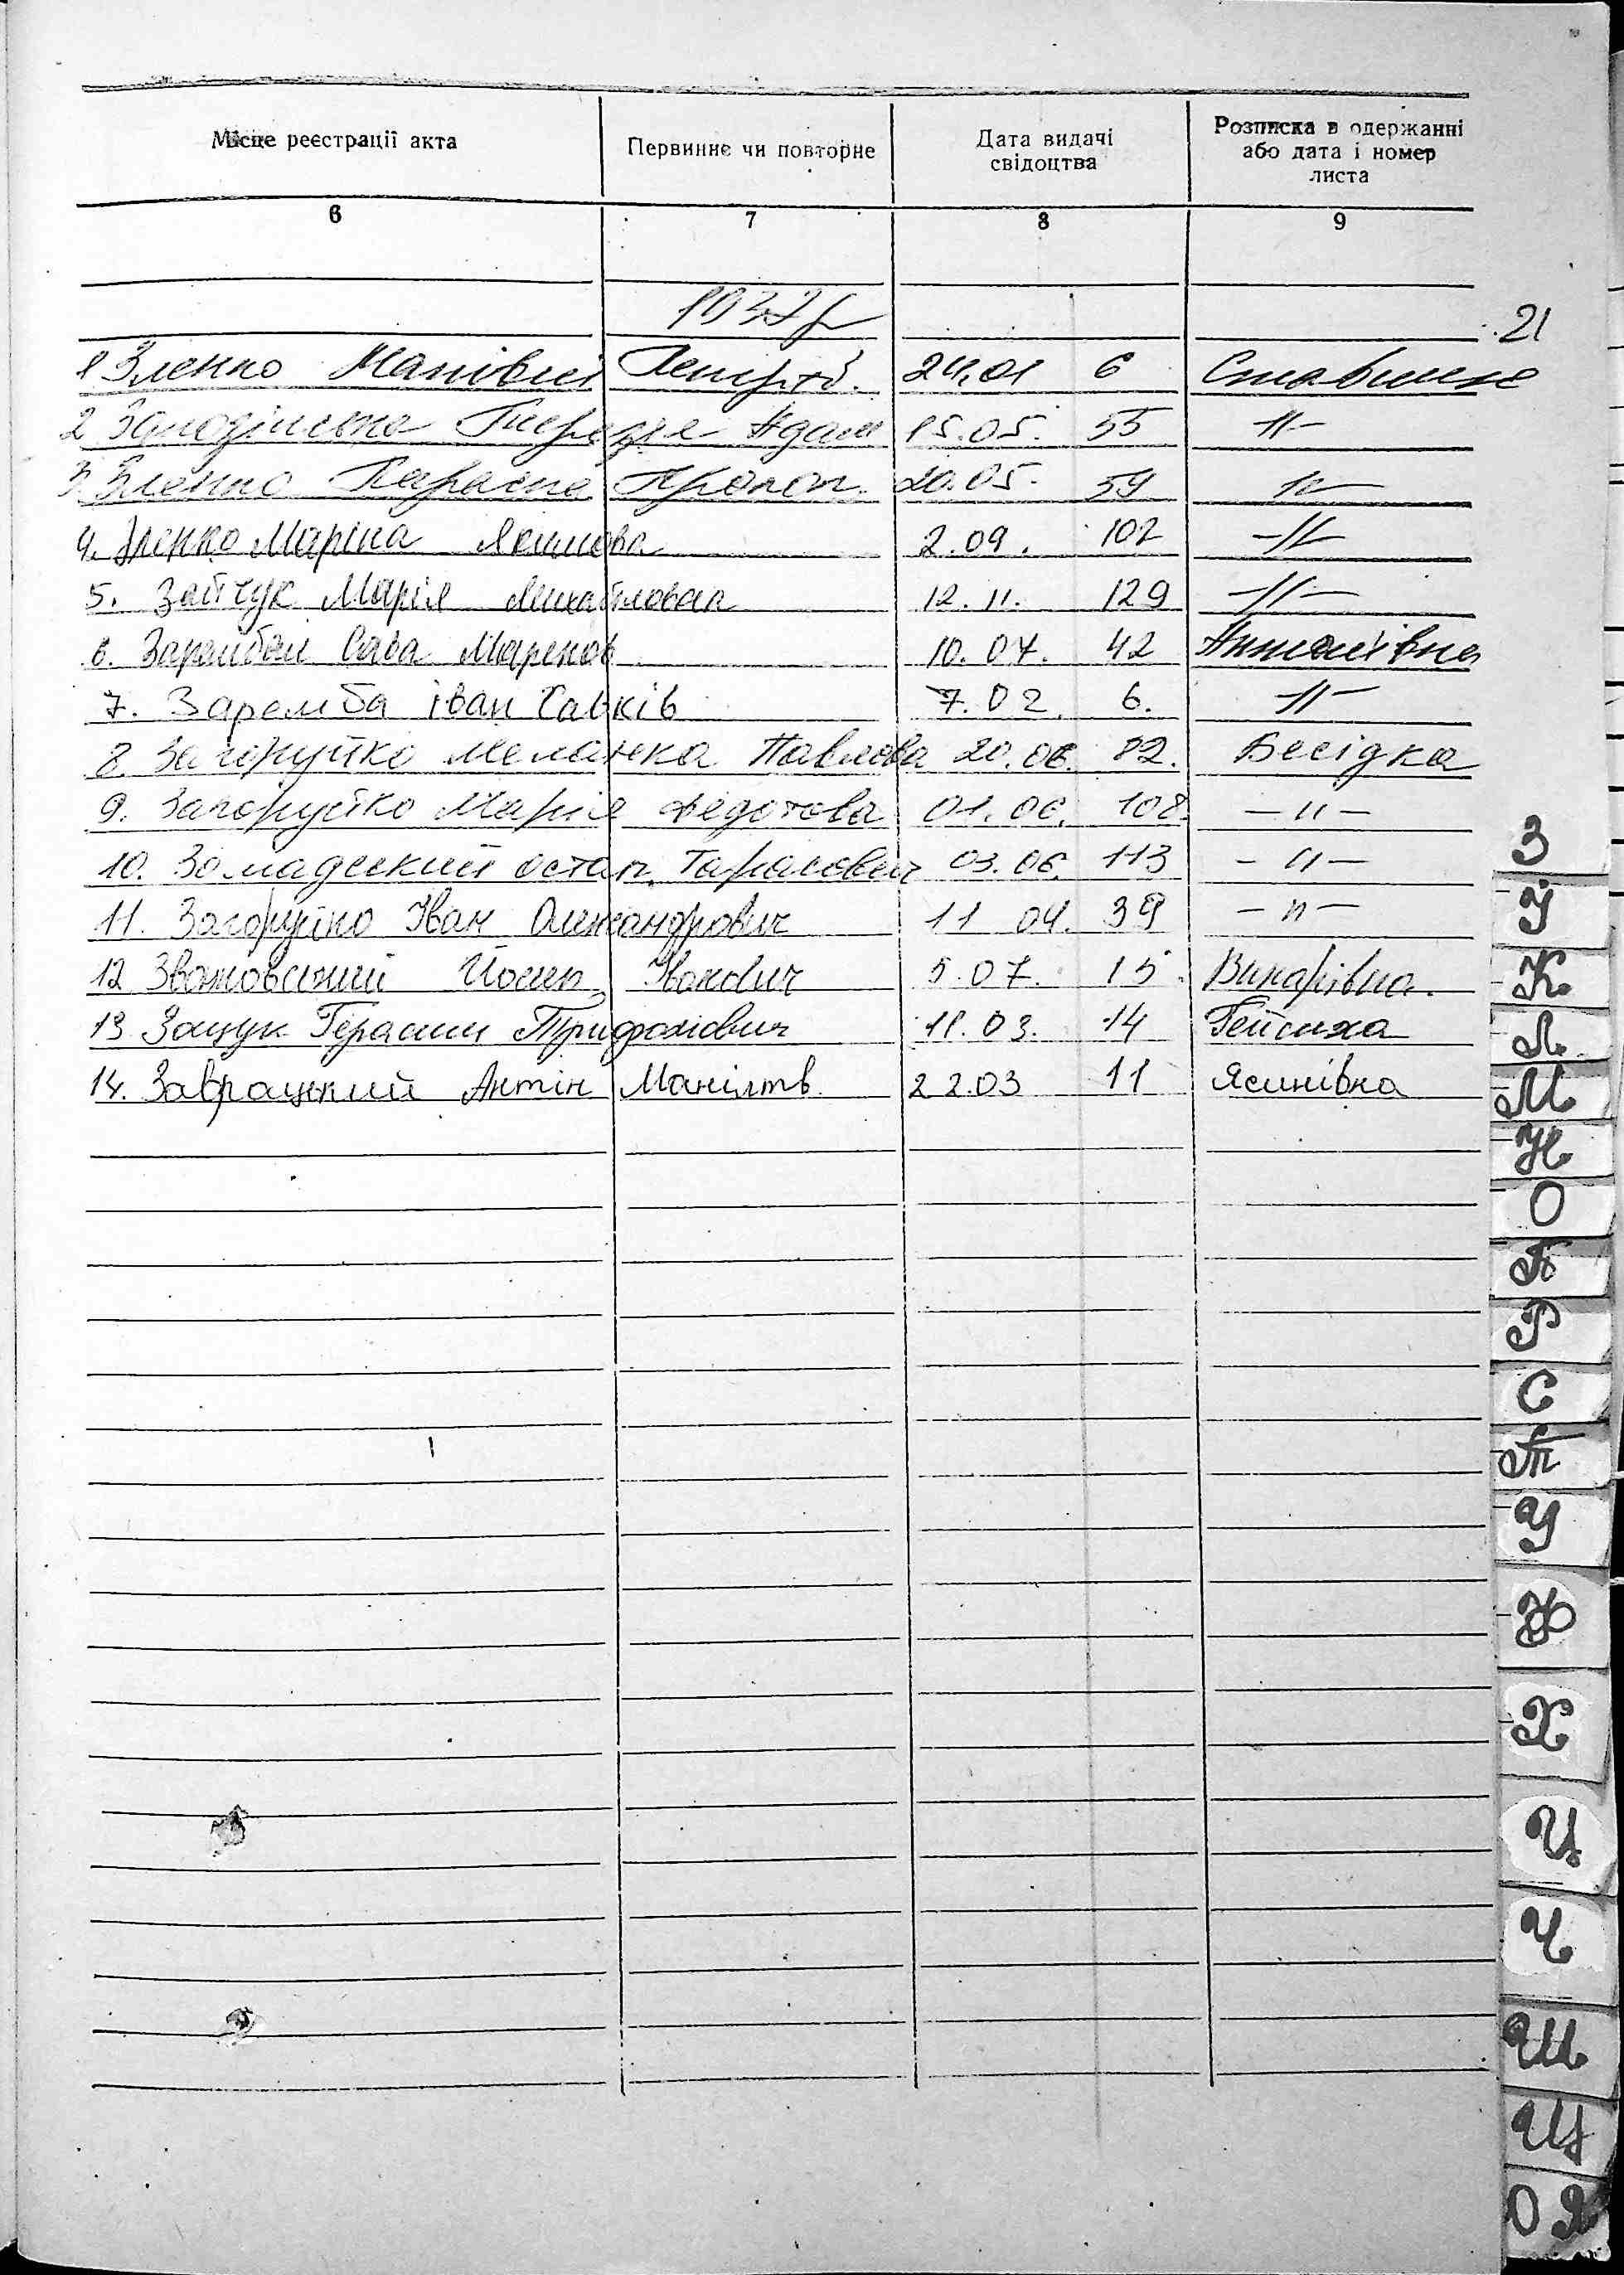 Місце реєстрації акта Первинне чи повторне Дата видачі свідоцтва Розписка в одержанні або дата і номер листа
6 7 8 9
1937р
21
1 Зленко 24.01 6 Ставище
2 Адам 15.05. 55 -//-
3. Зленко Параска Прокоп. 20.05. 59 -//-
4. Зленко Маріна Якимова 2.09. 102 -//-
5. Зайчук Марія Михайлован 12.11. 129 -//-
6. Сава Марков 10.07. 42
7. Заремба іван Савків 7.02. 6. -//-
8. Загоруйко Меланка Павлова 20.06. 82. Бесідка
9. Загоруйко Марія Федотова 01.06. 108. -//-
10. Остап Тарасович 03.06. 113 -//-
11. Загоруйко Іван Олександрович 11 04. 39 -//-
12 Йосип Іванович 5.07. 15. Винарівка.
13 Защук Герасим Трифонович 11.03. 14 Гейсиха
14. Заврацький Антін 22.03 11 Ясинівка
З
І
К
Л
М
Н
О
П
Р
С
Т
У
Ф
Х
Ц
Ч
Ш
Щ
Ю Я